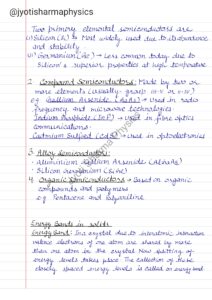 @jyotisharmaphysics
Two primary elemental semiconductors are
(i) Silicon (Si) → Most widely used due to its abundance
and stability
(ii) Germanium (Ge) → Less common today due to
Silicon's superior properties at high temperature
2. Compound Semiconductors: Made by two or
more elements (usually group III-V or II-V)
e.g. Gallium Arsenide (GaAs) → Used in radio
frequency and microwave technologies
Indium Phosphide (InP) → Used in fibre optics
communications
Cadmium Sulfide (CdS) → Used in optoelectronics
3. Alloy Semiconductors
- Aluminium Gallium Arsenide (AlGaAs)
- Silicon Germanium (SiGe)
4. Organic Semiconductors → Based on organic
compounds and polymers
e.g. Pentacene and polyaniline
Energy Bands in solids
Energy Band: In a crystal due to interatomic interaction
valence electrons of one atom are shared by more
than one atom in the crystal. Now splitting of
energy levels takes place. The collection of these
closely spaced energy levels is called an energy band